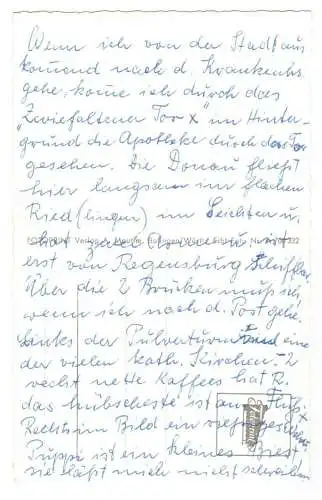 Wenn ich von der Stadt aus
komend nach d. Krankenhs
gehe, kome ich durch das
"Zwiefaltener Tor x" im Hinter-
grund die Apotheke durch das Tor
gesehen. Die Donau fließt
hier langsam im flachen
Ried (lingen) im Seichten u.
ist
erst von Regensburg Schiffbar
Über die 2 Brücken muß ich,
wenn ich nach d. Post gehe.
Links der Pulverturm eine
der vielen kath. Kirchen. 2
recht nette Kaffees hat R.
das hübscheste ist am Fluß x
Rechts im Bild ein
Puppi ist ein kleines Biest
sie läßt mich nicht schreiben